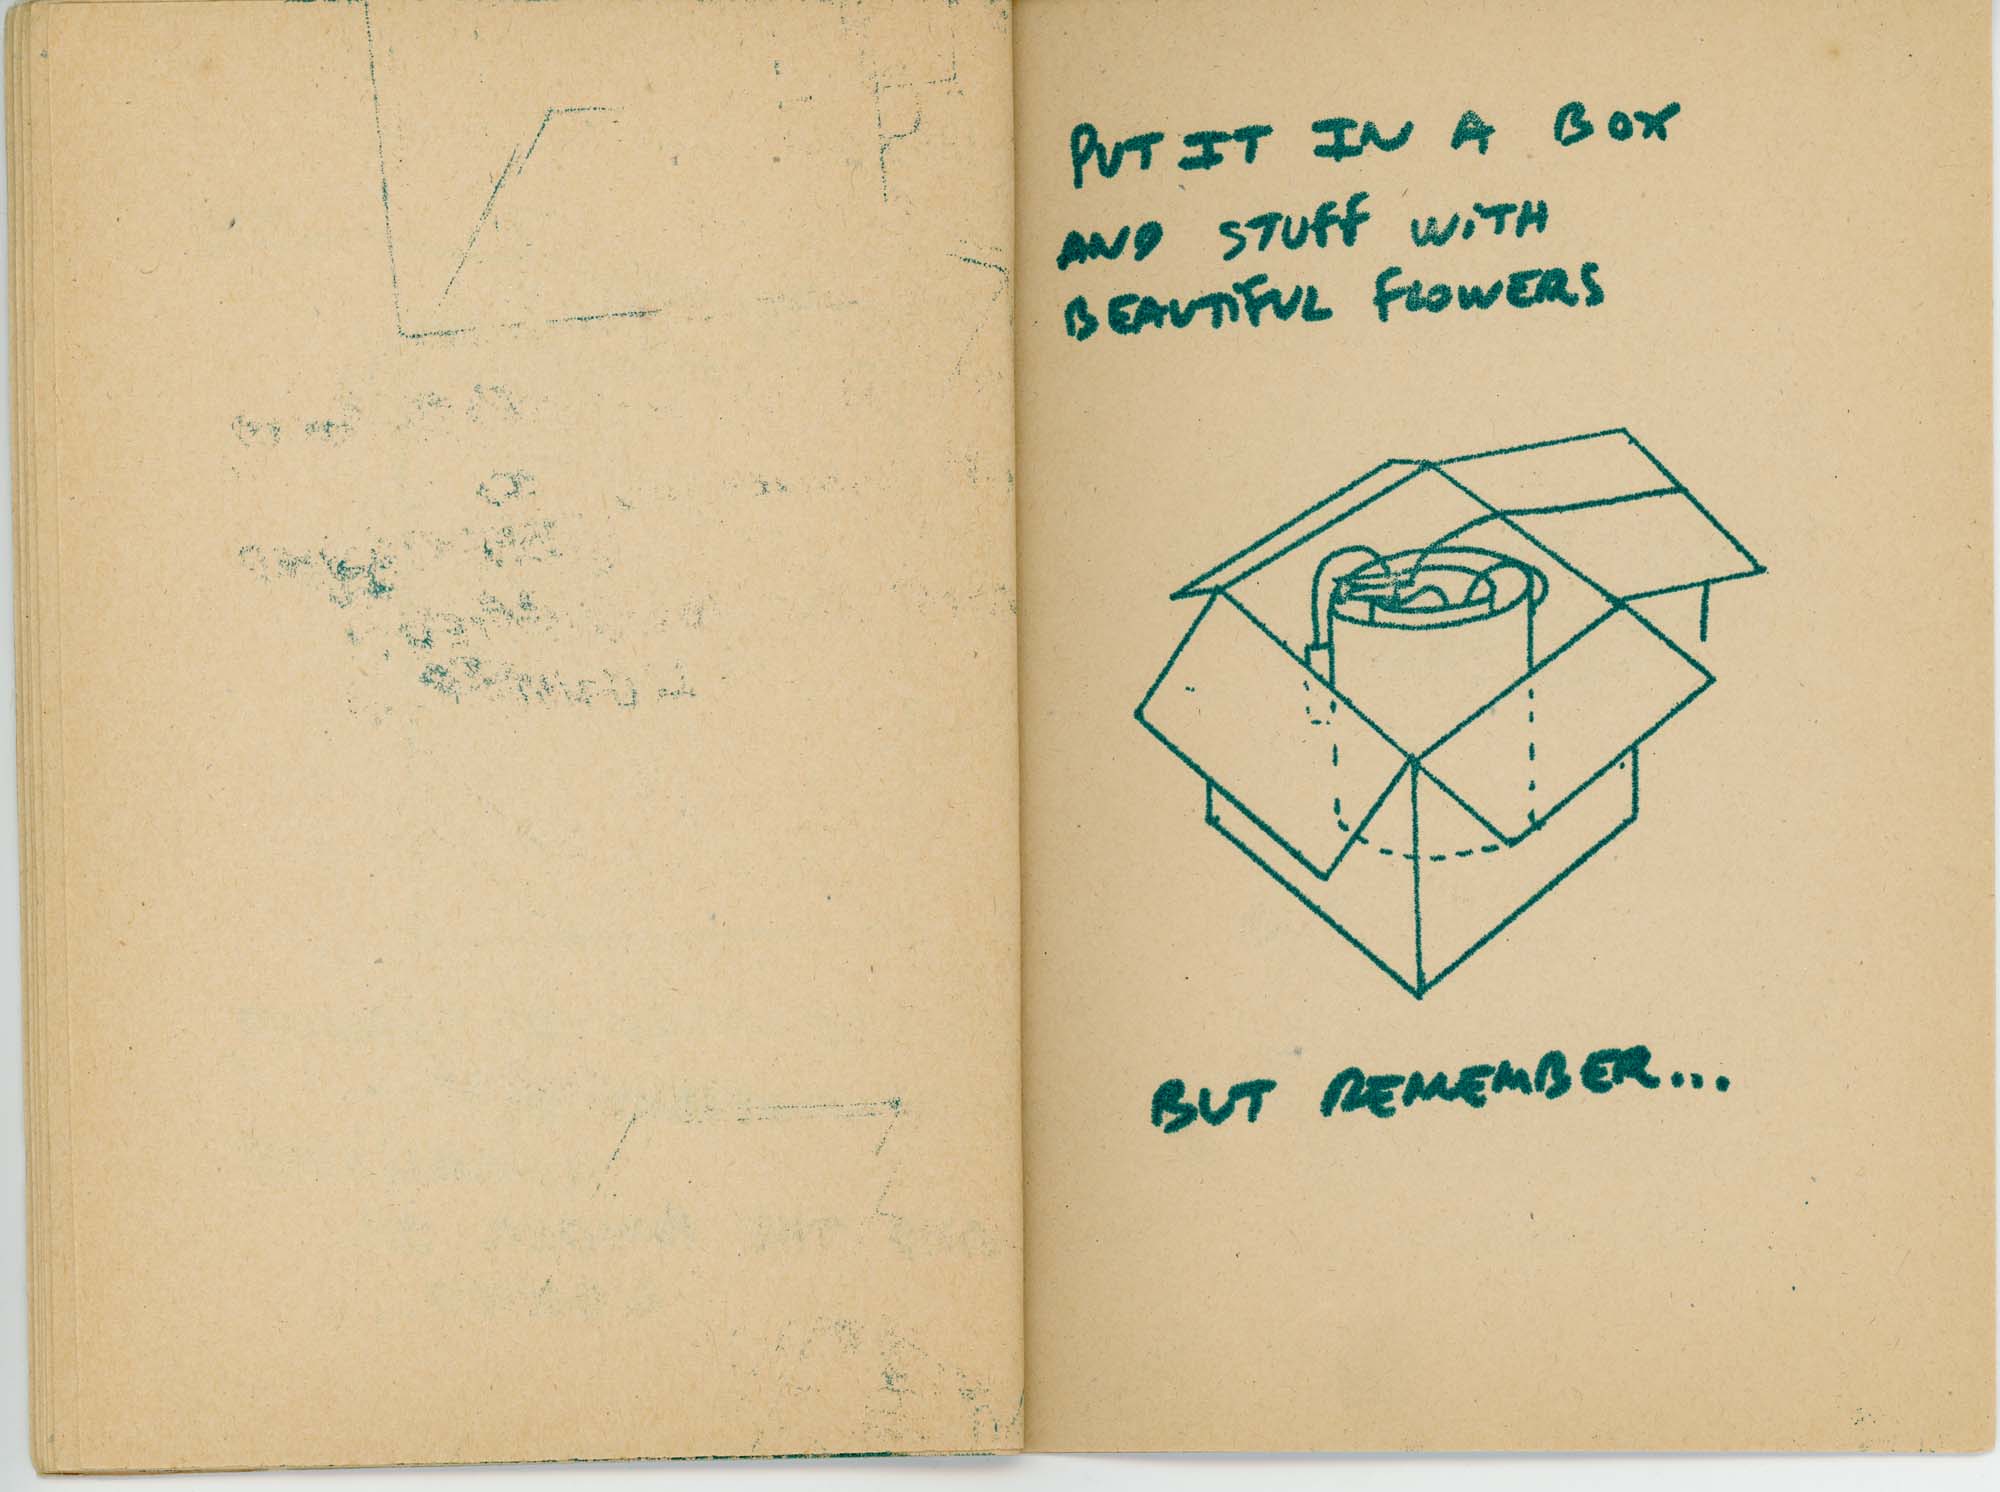 PUT IT IN A BOX
AND STUFF WITH
BEAUTIFUL FLOWERS
BUT REMEMBER...